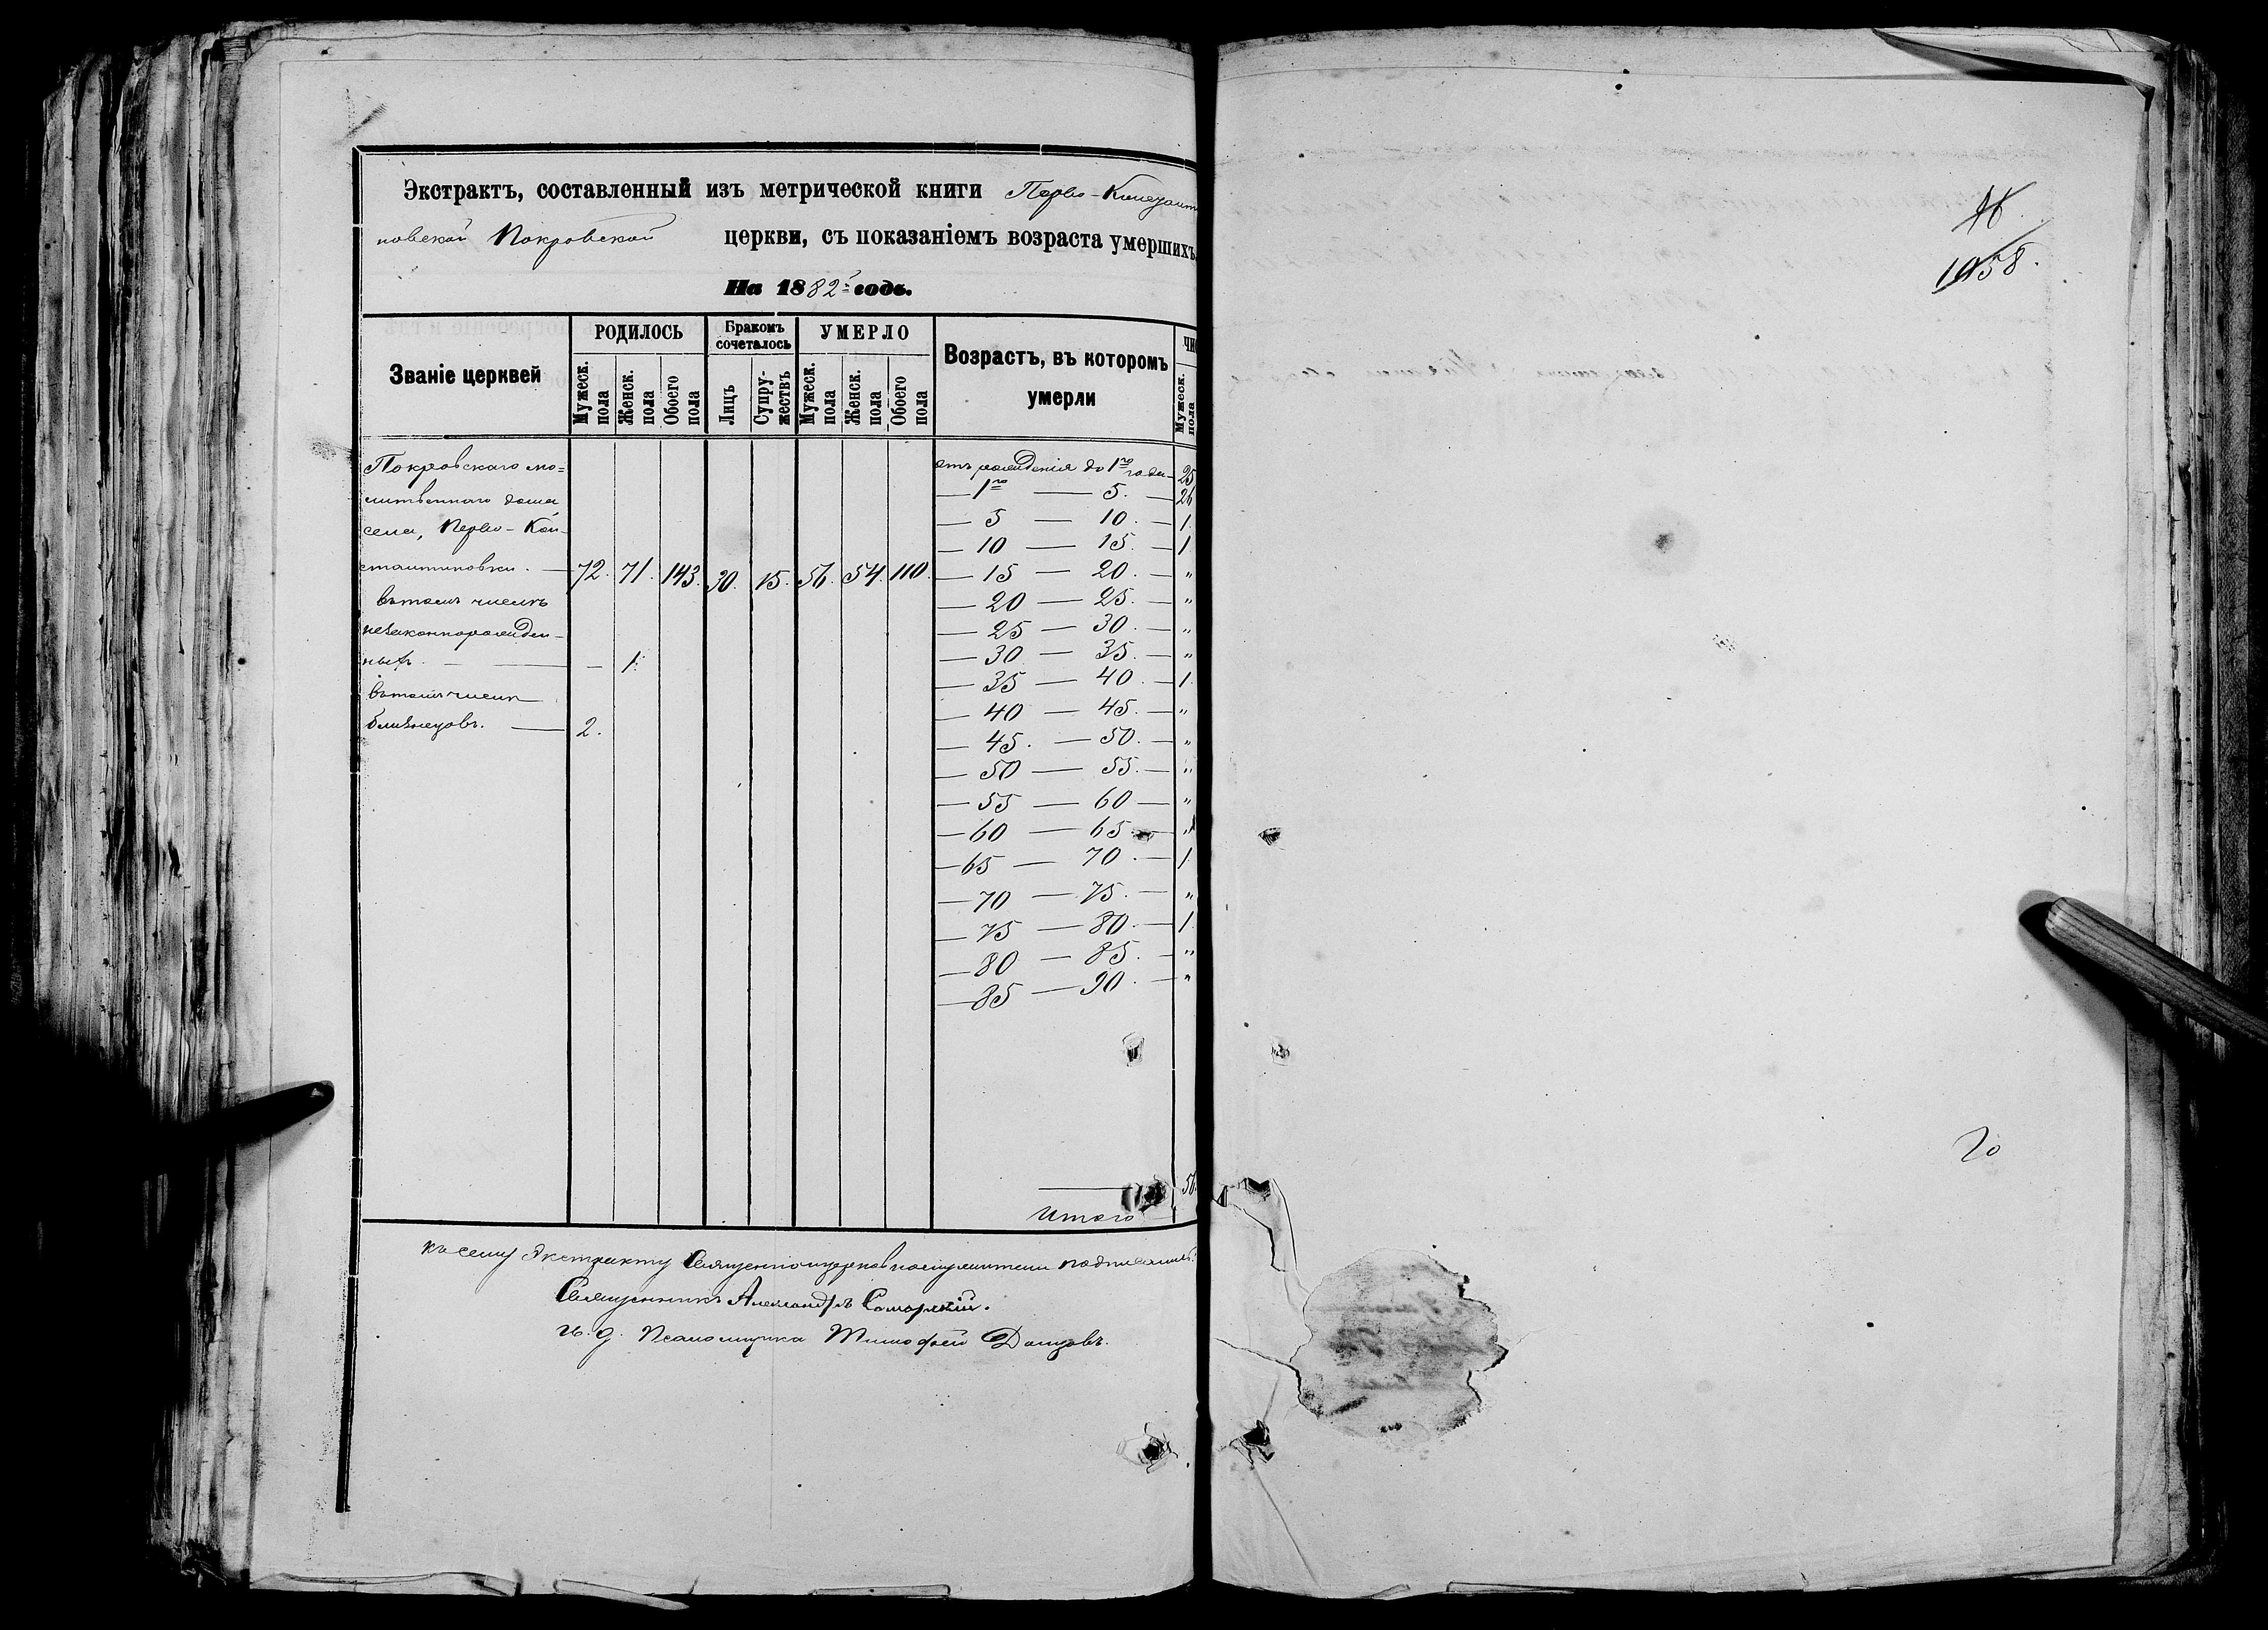 Экстрактъ, составленный изъ метрической книги Перво-Констант
новской Покровской церкви, съ показаніемъ возраста умершихъ.
На 1882й годъ.
Званіе церквей
РОДИЛОСЬ
Бракомъ сочеталось
УМЕРЛО
Возрастъ, въ которомъ умерли
Мужеск. пола
Женск. пола
Обоего пола
Лицъ
Супружествъ
Мужеск. пола
Женск. пола
Обоего пола
Мужеск. пола
Покровскаго мо=
литвеннаго дома
села, Перво-Кон-
стантиновки. — 72. 71. 143. 30. 15. 56. 54. 110.
въ томъ числѣ
незаконнорожден-
ныхъ. — — 1.
въ томъ числѣ
близнецовъ. — 2.
отъ рожденія до 1го года — 25
— 1го — 5. — 26
— 5 — 10. — 1.
— 10 — 15. — 1.
— 15 — 20. — "
— 20 — 25. — "
— 25 — 30. — "
— 30 — 35. — "
— 35 — 40. — 1.
— 40 — 45. — "
— 45. — 50. — "
— 50 — 55. — "
— 55 — 60 — "
— 60 — 65 — "
— 65 — 70. — 1.
— 70 — 75. — "
— 75 — 80. — 1.
— 80 — 85. — "
— 85 — 90. — "
Итого — 56.
Къ сему Экстракту Священноцерковнослужители подписались:
Священникъ Александръ Самарскій.
И. д. Псаломщика Тимофей Донцовъ.
1058.
20